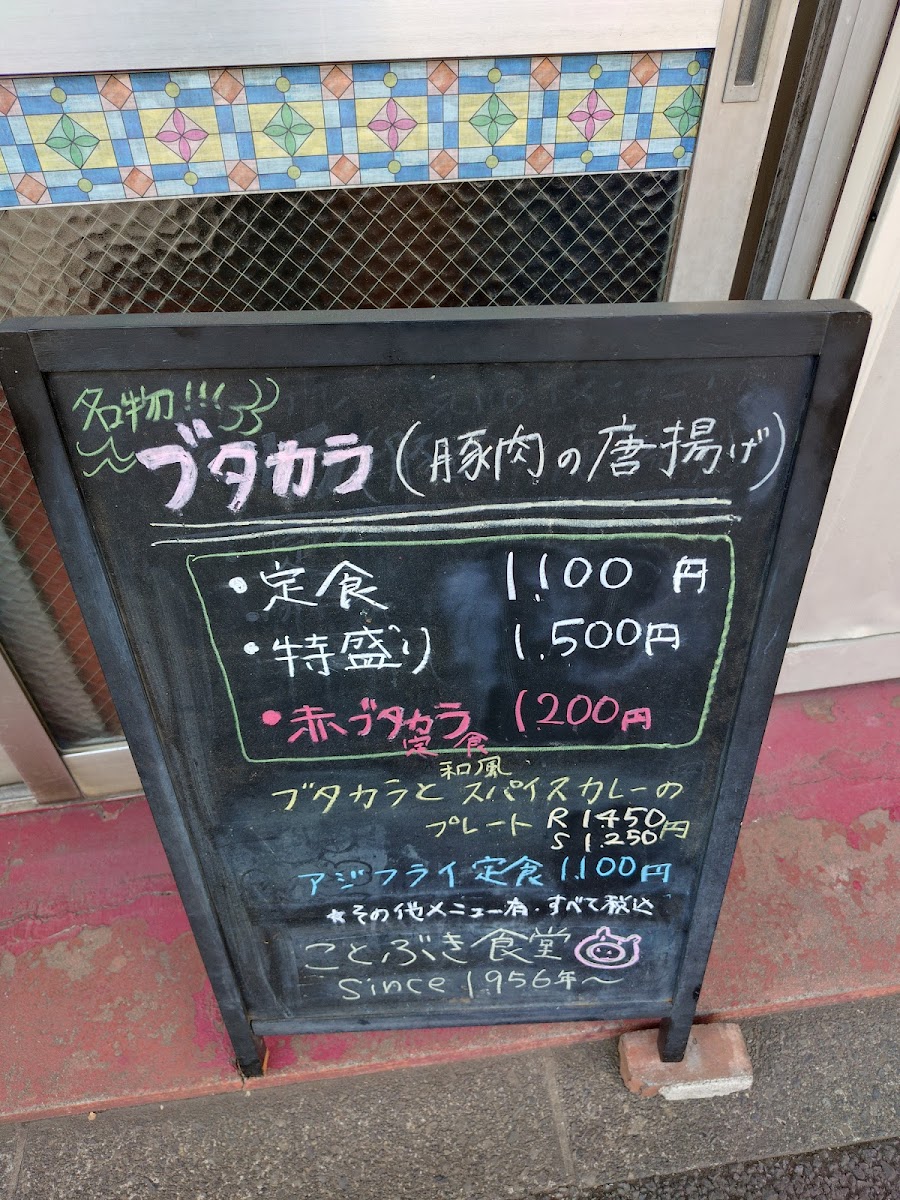 名物!!!
ブタカラ(豚肉の唐揚げ)
・定食 1,100円
・特盛り 1,500円
・赤ブタカラ定食 1200円
和風
ブタカラとスパイスカレーの
プレート R 1450
S 1.250円
アジフライ定食 1,100円
★その他メニュー有・すべて税込
ことぶき食堂
since 1956年〜